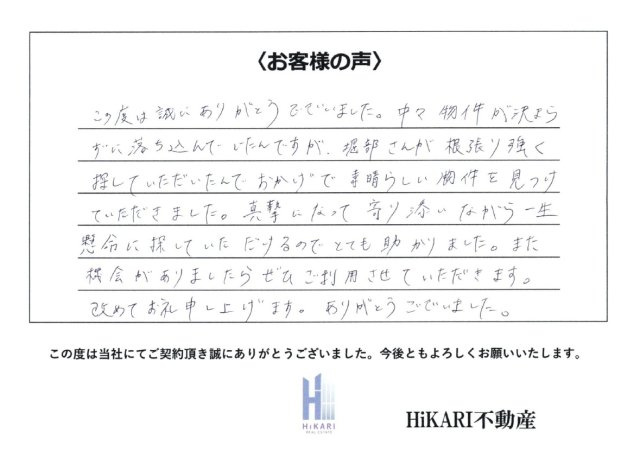 〈お客様の声〉
この度は誠にありがとうございました。中々物件が決まら
ずに落ち込んでいたんですが、堀部さんが根張り強く
探していただいたんでおかげで素晴らしい物件を見つけ
ていただきました。真摯になって寄り添いながら一生
懸命に探していただけるのでとても助かりました。また
機会がありましたらぜひご利用させていただきます。
改めてお礼申し上げます。ありがとうございました。
この度は当社にてご契約頂き誠にありがとうございました。今後ともよろしくお願いいたします。
HiKARI
REAL ESTATE
HiKARI不動産